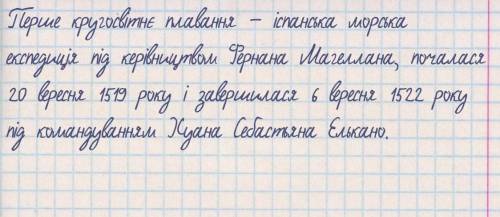 Перше кругосвітнє плавання – іспанська морська
експедиція під керівництвом Фернана Магеллана, почалася
20 вересня 1519 року і завершилася 6 вересня 1522 року
під командуванням Хуана Себастьяна Елькано.